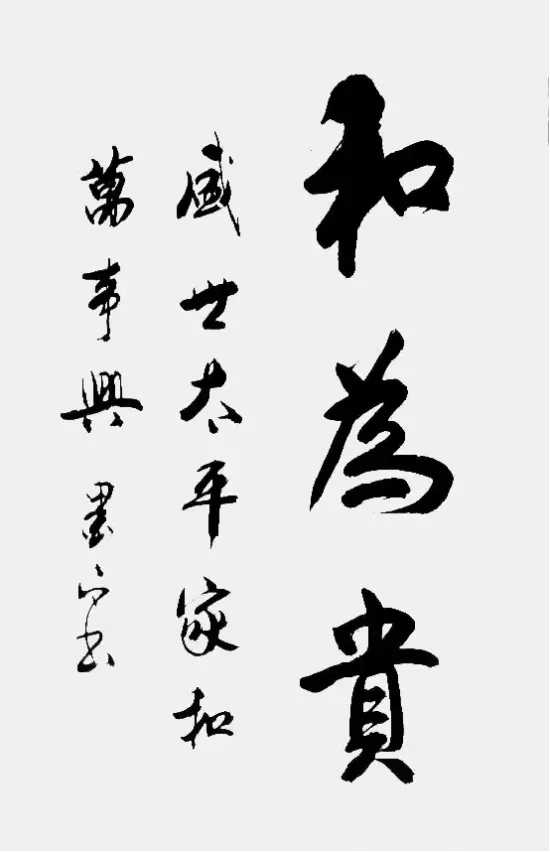 和為貴
盛世太平家和
萬事興 墨六书